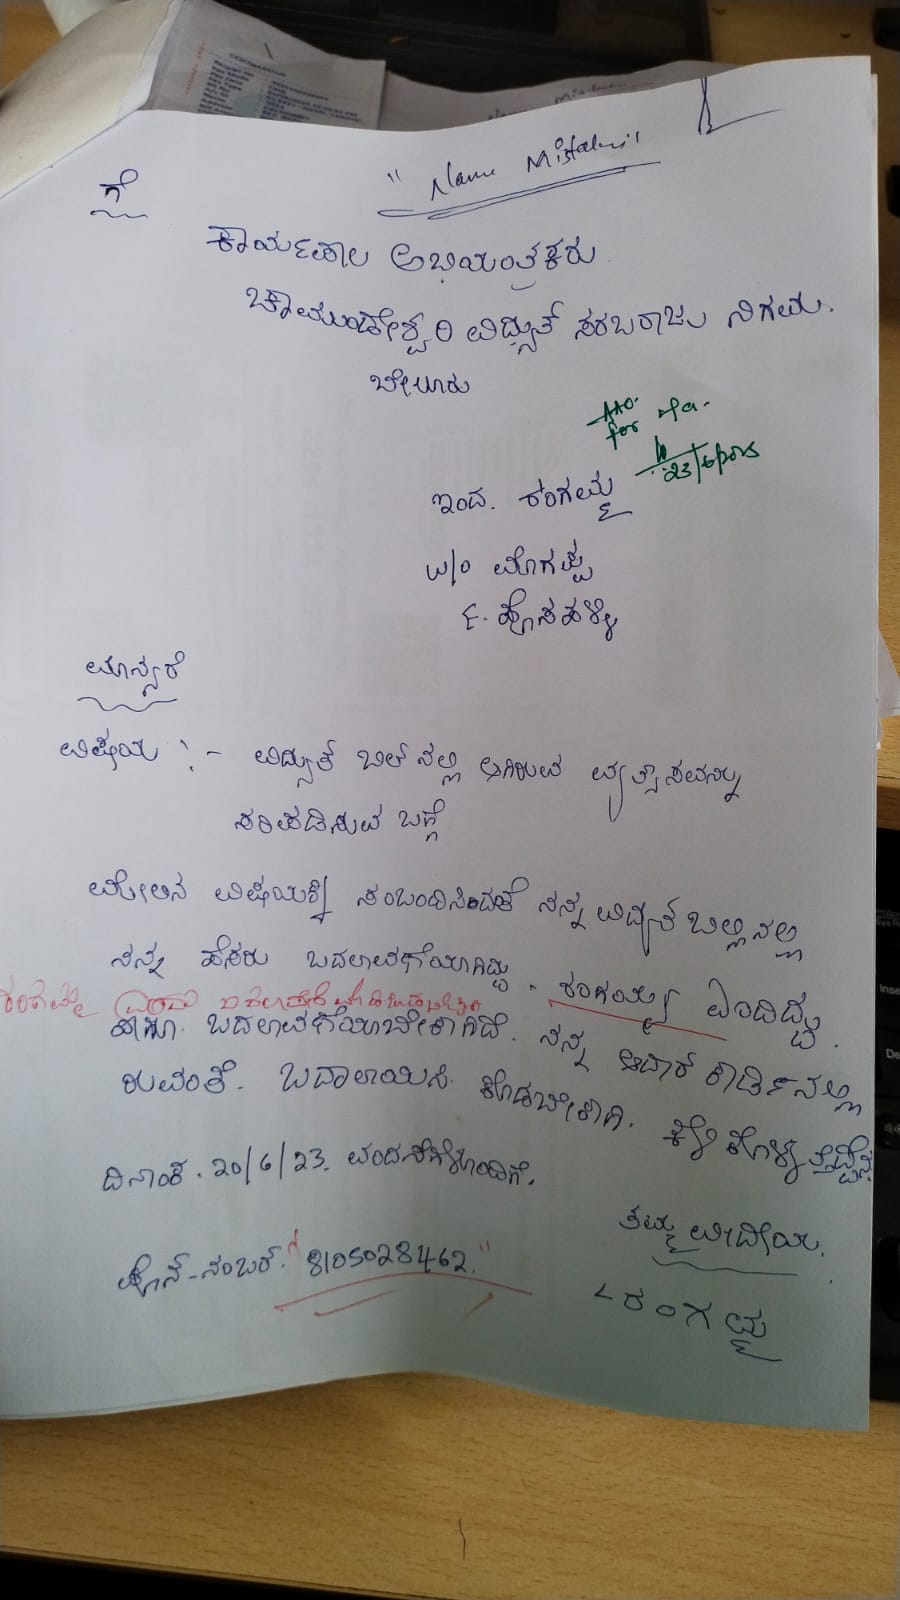 "Name Mistake"
ಗೆ
ಕಾರ್ಯಪಾಲ ಅಭಿಯಂತ್ರಕರು.
ಚಾಮುಂಡೇಶ್ವರಿ ವಿದ್ಯುತ್ ಸರಬರಾಜು ನಿಗಮ.
ಬೇಲೂರು
AAO.
for
23/6/2023
ಇಂದ. ರಂಗಮ್ಮ
w/o ಮೊಗಪ್ಪ
ಹೊಸಹಳ್ಳಿ
ಮಾನ್ಯರೆ
ವಿಷಯ :- ವಿದ್ಯುತ್ ಬಿಲ್ ನಲ್ಲಿ ಆಗಿರುವ ವ್ಯತ್ಯಾಸವನ್ನು
ಸರಿಪಡಿಸುವ ಬಗ್ಗೆ
ಮೇಲಿನ ವಿಷಯಕ್ಕೆ ಸಂಬಂದಿಸಿದಂತೆ ನನ್ನ ವಿದ್ಯುತ್ ಬಿಲ್ಲಿನಲ್ಲಿ
ನನ್ನ ಹೆಸರು ಬದಲಾವಣೆಯಾಗಿದ್ದು. ರಂಗಯ್ಯ ಎಂದಿದ್ದು.
ರಂಗಮ್ಮ ಎಂದು
ಹಾಗೂ ಬದಲಾವಣೆಯಾಬೇಕಾಗಿದೆ. ನನ್ನ ಆದಾರ್ ಕಾರ್ಡಿನಲ್ಲಿ
ರುವಂತೆ. ಬದಾಲಾಯಿಸಿ ಕೊಡಬೇಕಾಗಿ. ಕೇಳಿ ಕೊಳ್ಳುತ್ತಿದ್ದೇನೆ.
ದಿನಾಂಕ. 20/6/23. ವಂದನೆಗಳೊಂದಿಗೆ.
ತಮ್ಮ ವಿದೇಯ.
ಫೋನ್-ನಂಬರ್. "8105028462."
ರಂಗಮ್ಮ